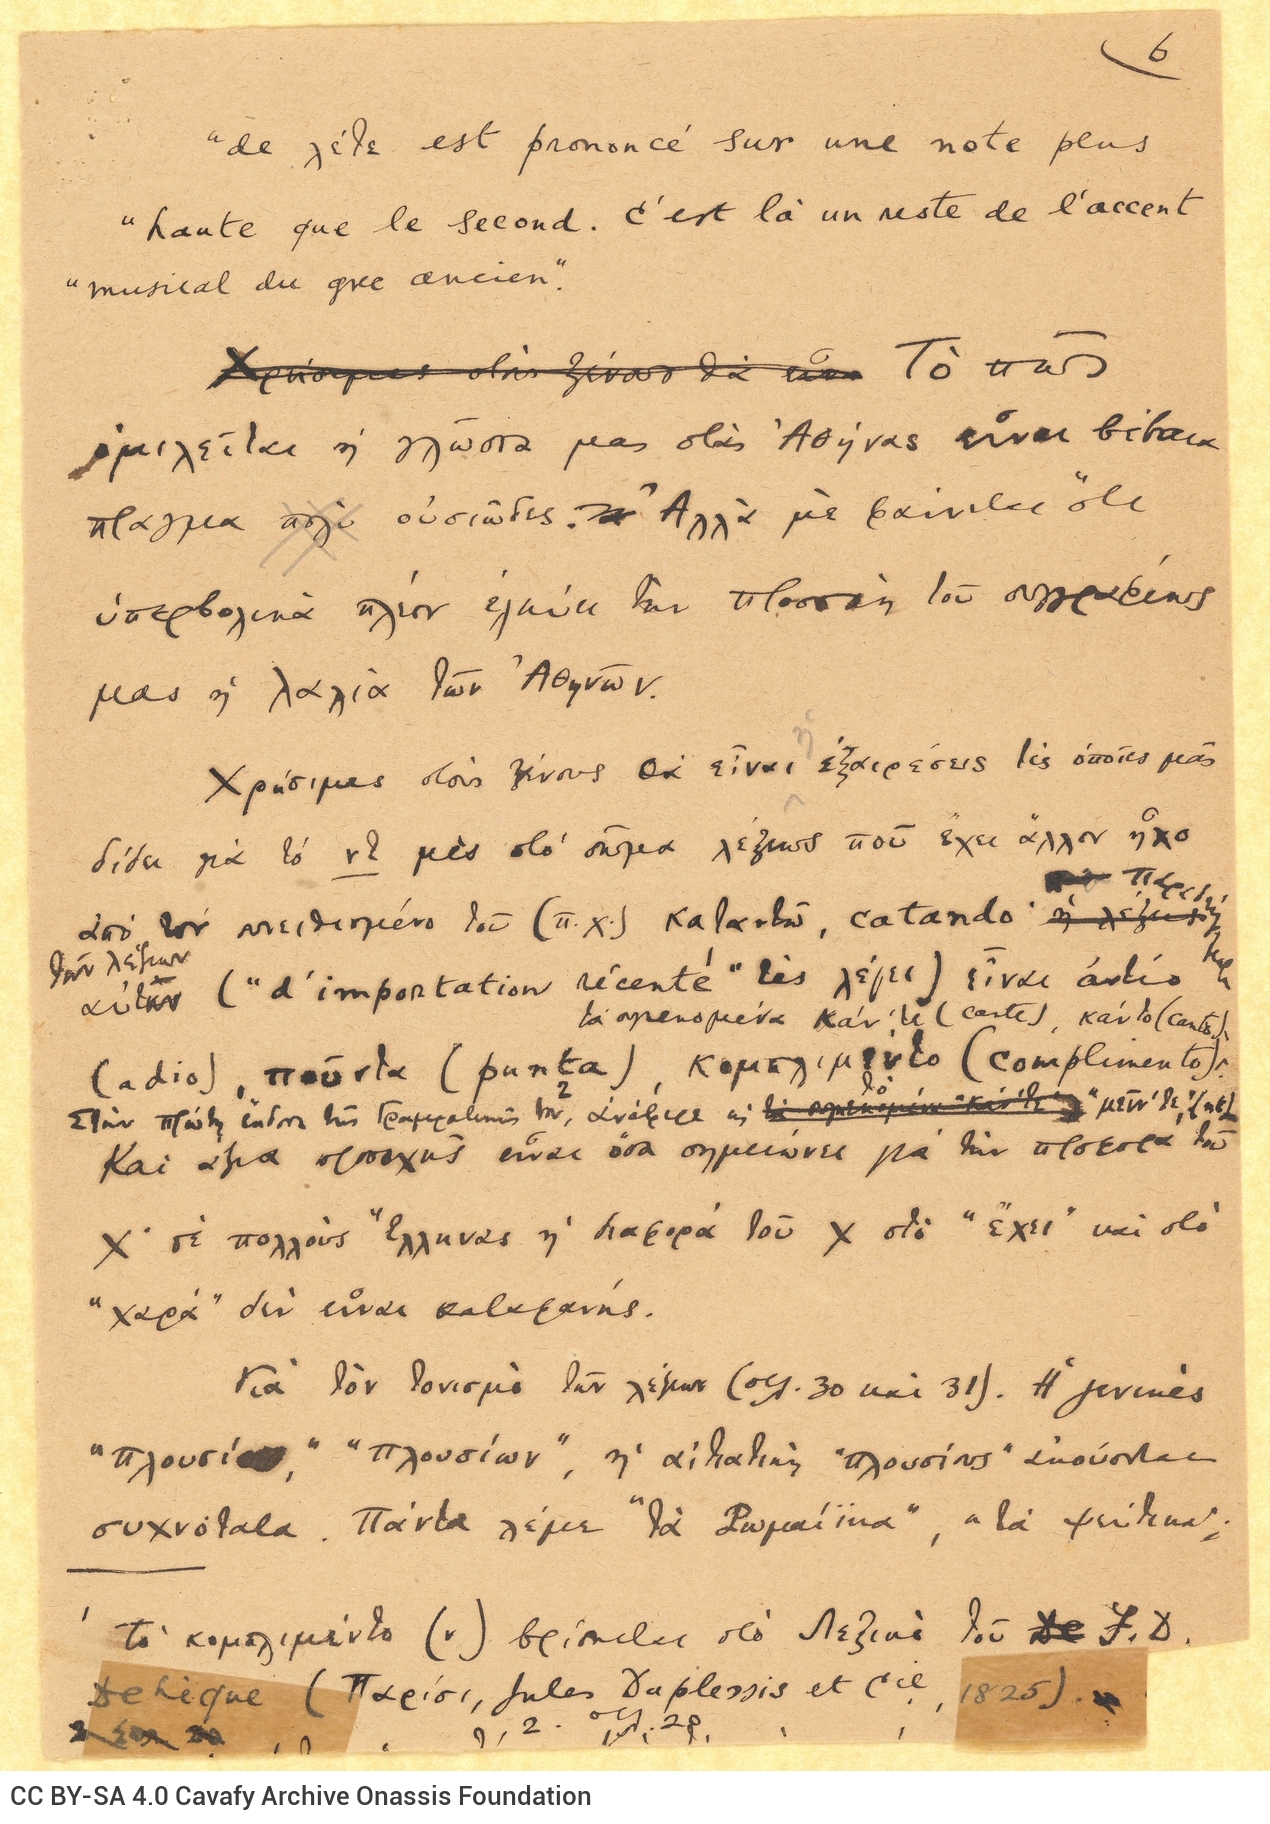 6
"de λέτε est prononcé sur une note plus
"haute que le second. C'est là un reste de l'accent
"musical du grec ancien".
Χρήσιμες στοὺς ξένους θὰ εἶναι Τὸ πῶς
ὁμιλεῖται ἡ γλῶσσα μας στὰς Ἀθήνας εἶναι βέβαια
πρᾶγμα πολὺ οὐσιῶδες. Ἀλλὰ μὲ φαίνεται ὅτι
ὑπερβολικὰ πλέον ἑλκύει τὴν προσοχὴ τοῦ συγγραφέως
μας ἡ λαλιὰ τῶν Ἀθηνῶν.
Χρήσιμες στοὺς ξένους θὰ εἶναι ἡ ἐξαιρέσεις τὲς ὁποῖες μᾶς
δίδει γιὰ τὸ ντ μὲς στὸ σῶμα λέξεως ποῦ ἔχει ἄλλον ἦχο
ἀπὸ τὸν συνειθισμένο του (π.χ.) καταντῶ, catando·
ἡ λέξεις
τῶν λέξεων
αὐτῶν ("d'importation récente" τὲς λέγει) εἶναι ἀντίο
τὰ σημειωμένα κάντε (cante), κάντο (canto),
(adio), πούντα (punta), κομπλιμέντο (complimento)¹.
Στὴν πρώτη ἔκδοσι τῆς Γραμματικῆς του², ἀνέφερε τὸ "μέντε",
Καὶ ἄξια προσοχῆς εἶναι ὅσα σημειώνει γιὰ τὴν προφορὰ τοῦ
χ· σὲ πολλοὺς Ἕλληνας ἡ διαφορὰ τοῦ χ στὸ "ἔχει" καὶ στὸ
"χαρά" δὲν εἶναι καταφανής.
Γιὰ τὸν τονισμὸ τῶν λέξεων (σελ. 30 καὶ 31). Ἡ γενικὲς
"πλουσίου," "πλουσίων", ἡ αἰτιατικὴ "πλουσίους" ἀκούονται
συχνότατα. Πάντα λέμε "τὰ Ρωμαίϊκα", "τὰ ψεύτικα";
1 τὸ κομπλιμέντο (ν) βρίσκεται στὸ Λεξικὸ τοῦ De F. D.
Dehèque (Παρίσι, Jules Duplessis et Cie, 1825).
2 σελ. 28.
CC BY-SA 4.0 Cavafy Archive Onassis Foundation